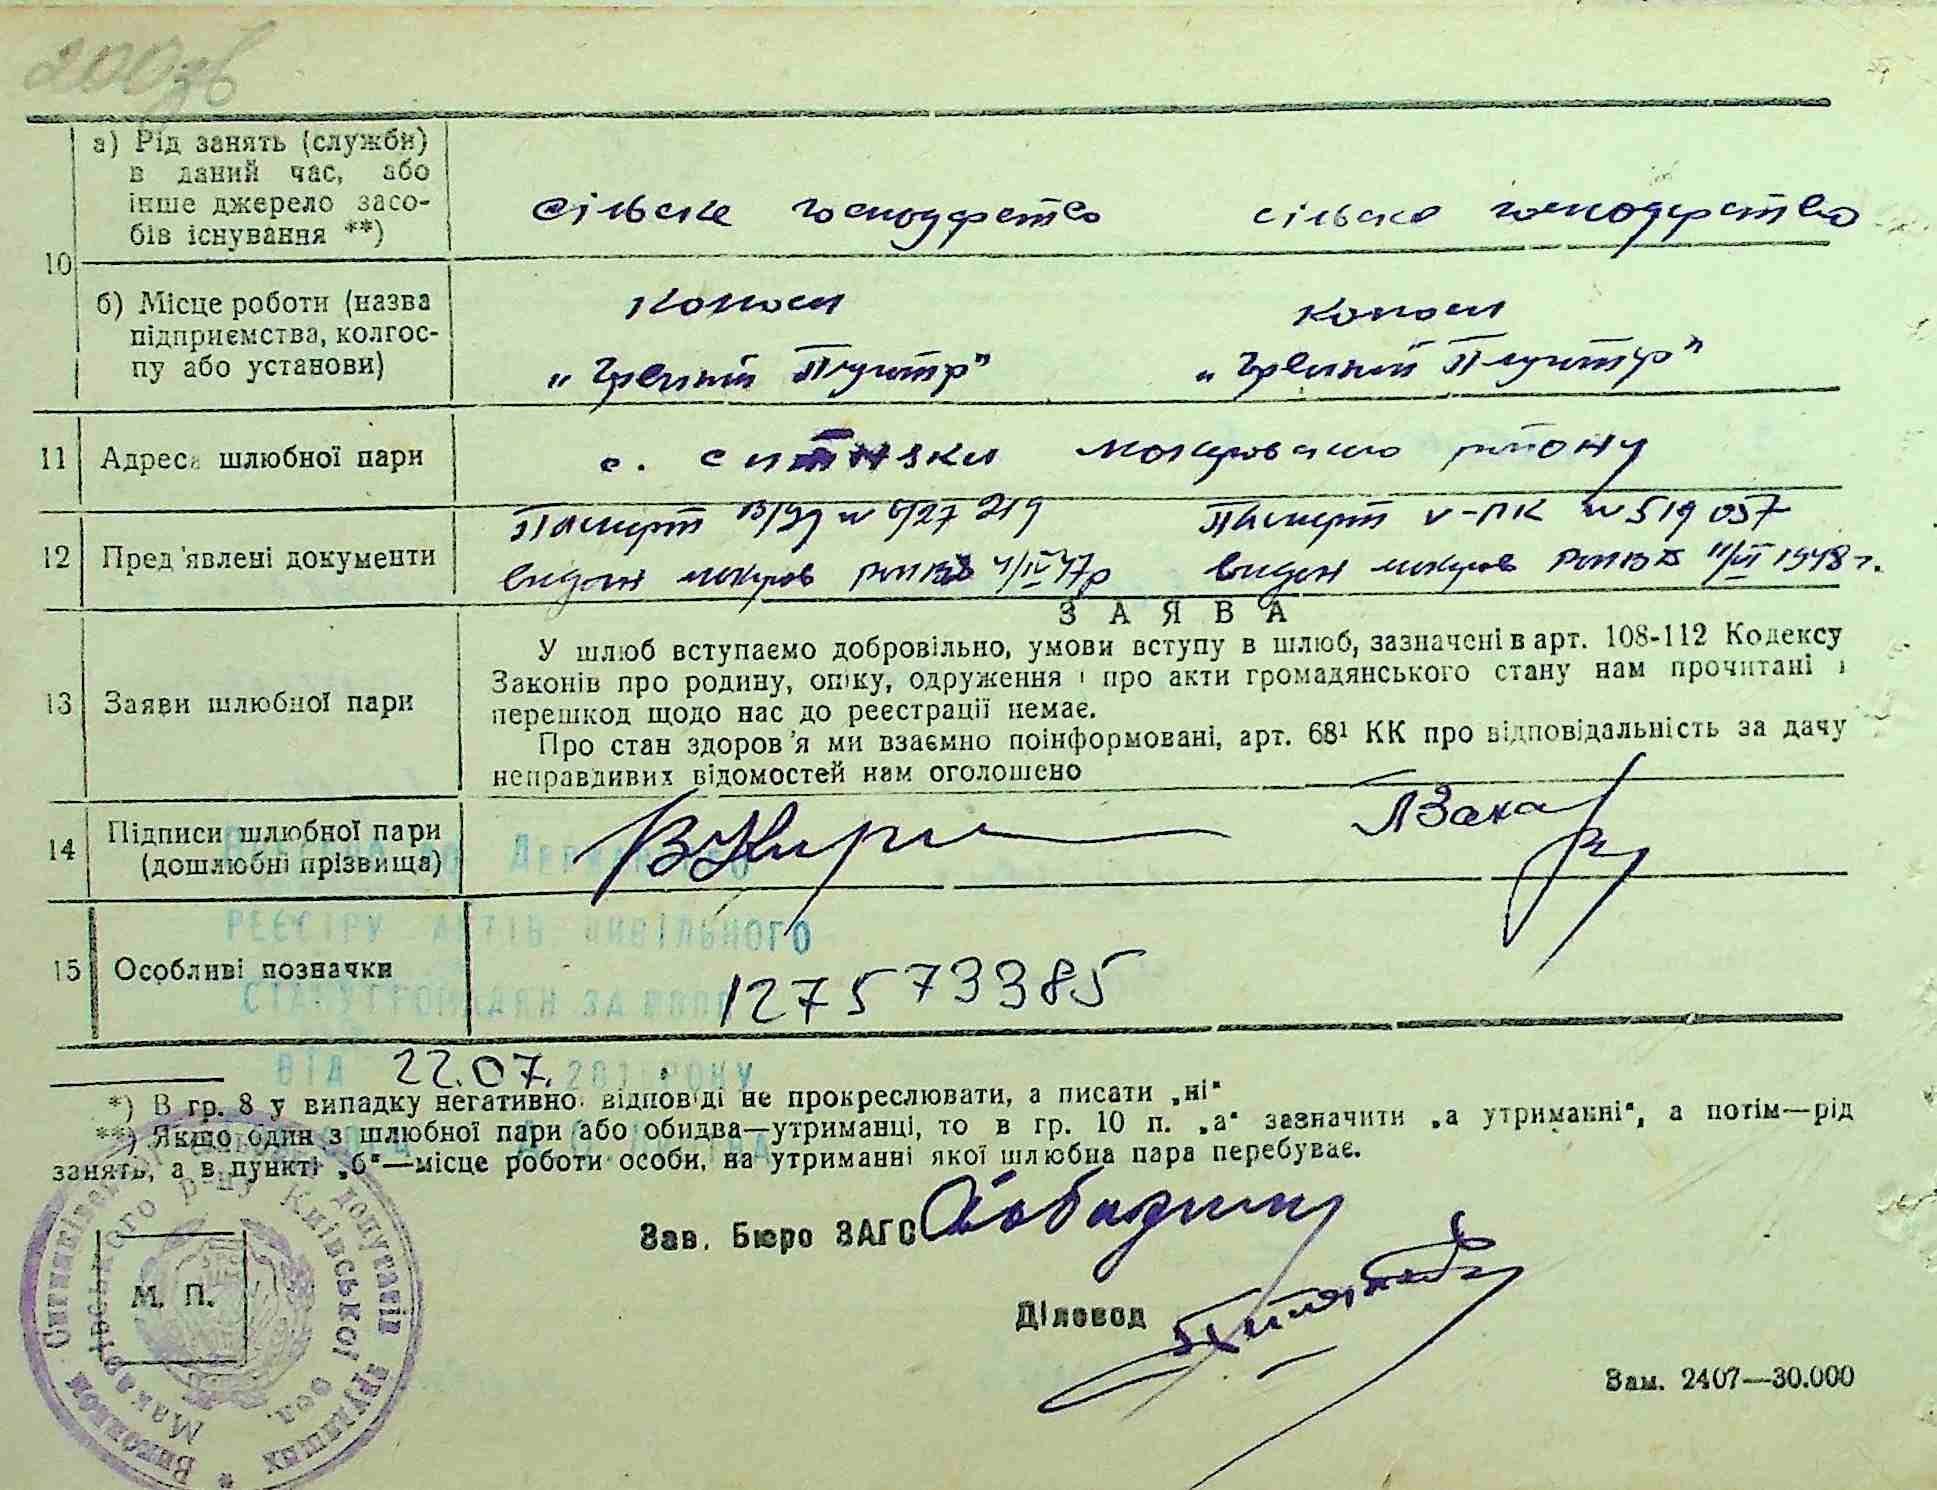 200зв
а) Рід занять (служби)
в даний час, або
інше джерело засо-
бів існування **)
сільске господарство сільске господарство
10
б) Місце роботи (назва
підприємства, колгос-
пу або установи)
колгосп колгосп
"Червоний Плугатар" "Червоний Плугатар"
11 Адреса шлюбної пари
с. Ситняки Макаровського району
12 Пред'явлені документи
Паспорт № 627219 Паспорт V-ПК № 519057
видан Макаров 4/IV 47р видан Макаров 11/VI 1948 г.
ЗАЯВА
13 Заяви шлюбної пари
У шлюб вступаємо добровільно, умови вступу в шлюб, зазначені в арт. 108-112 Кодексу
Законів про родину, опіку, одруження і про акти громадянського стану нам прочитані і
перешкод щодо нас до реєстрації немає.
Про стан здоров'я ми взаємно поінформовані, арт. 68¹ КК про відповідальність за дачу
неправдивих відомостей нам оголошено
14 Підписи шлюбної пари
(дошлюбні прізвища)
Державного
РЕЄСТРУ АКТІВ ЦИВІЛЬНОГО
15 Особливі позначки
СТАНУ ГРОМАДЯН ЗА
127573385
ВІД 22.07. 201 РОКУ
*) В гр. 8 у випадку негативної відповіді не прокреслювати, а писати „ні“
**) Якщо один з шлюбної пари або обидва—утриманці, то в гр. 10 п. „а“ зазначити „а утриманні“, а потім—рід
занять, а в пункті „б“—місце роботи особи, на утриманні якої шлюбна пара перебуває.
Зав. Бюро ЗАГС
Діловод
М. П.
Виконком депутатів трудящих
Макарівського р-ну Київської обл.
Зам. 2407—30.000